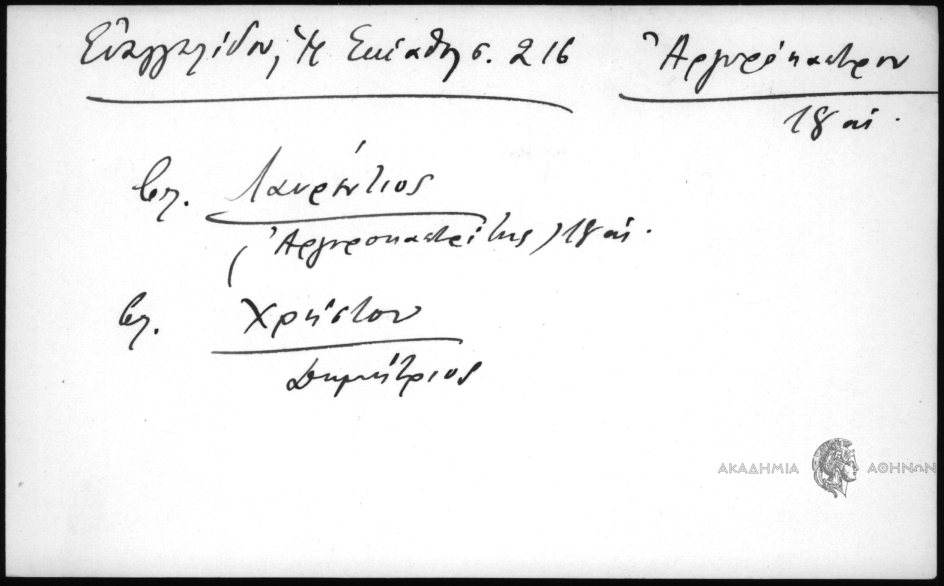 Εὐαγγελίδου, Ἡ Σκίαθος σ. 216
Ἀργυρόκαστρον
18 αἰ.
βλ. Λαυρέντιος
(Ἀργυροκαστρίτης) 18 αἰ.
βλ. Χρήστου
Δημήτριος
ΑΚΑΔΗΜΙΑ ΑΘΗΝΩΝ